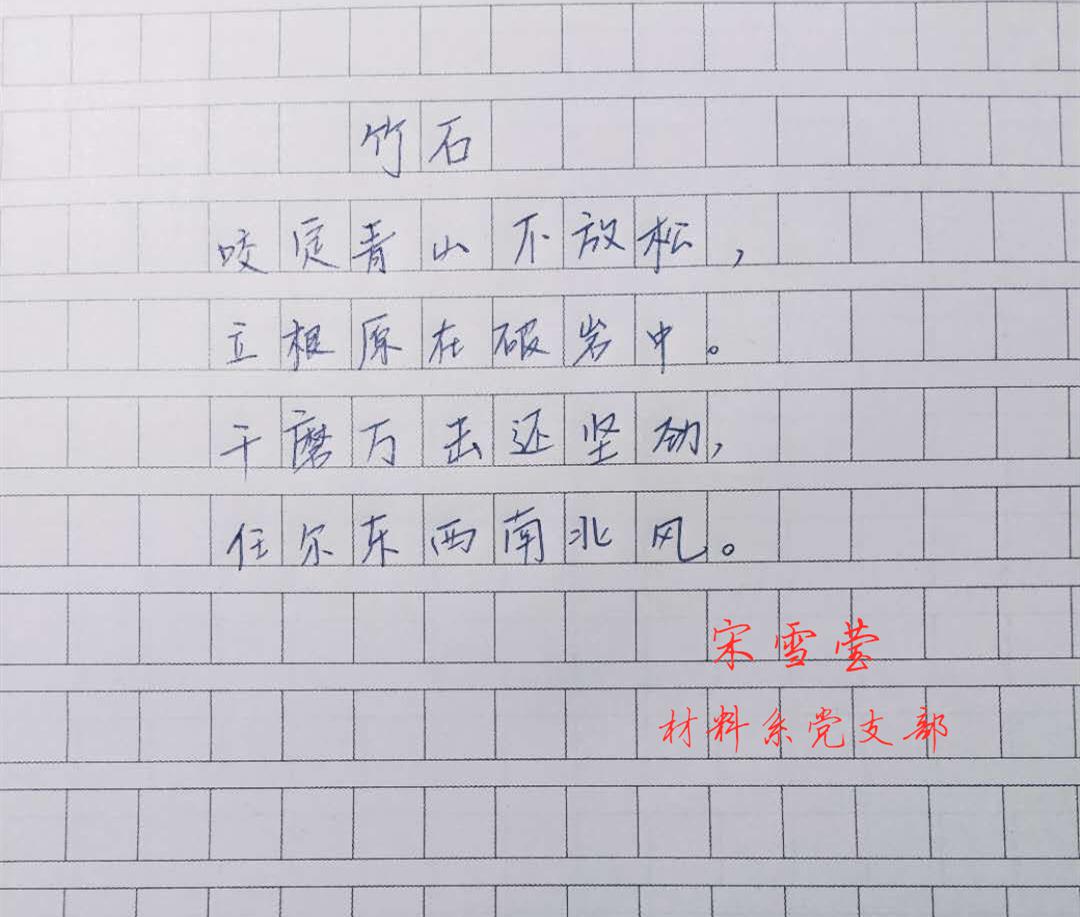 竹石
咬定青山不放松，
立根原在破岩中。
千磨万击还坚劲，
任尔东西南北风。
宋雪莹
材料系党支部